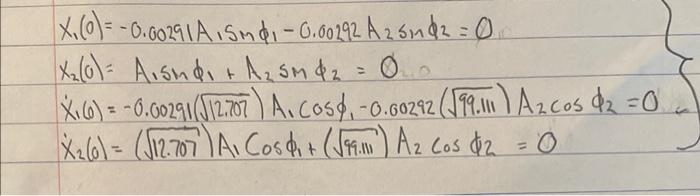 X₁(0) = -0.00291 A₁ Sin ϕ₁ - 0.00292 A₂ sin ϕ₂ = 0
X₂(0) = A₁ sin ϕ₁ + A₂ sin ϕ₂ = 0
Ẋ₁(0) = -0.00291 (√12.707) A₁ Cos ϕ₁ - 0.00292 (√99.111) A₂ cos ϕ₂ = 0
Ẋ₂(0) = (√12.707) A₁ Cos ϕ₁ + (√99.111) A₂ Cos ϕ₂ = 0